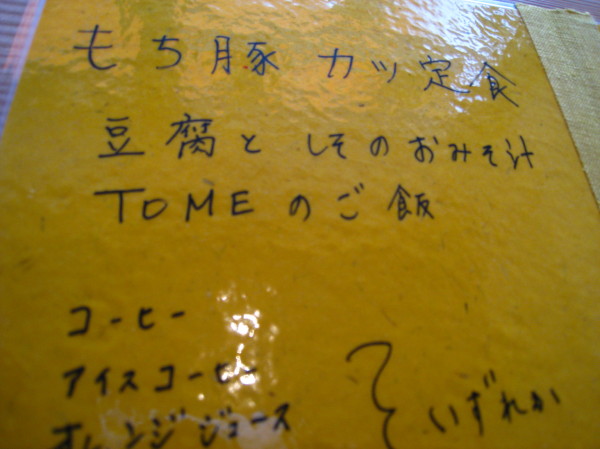 もち豚 カツ定食
豆腐と しそのおみそ汁
TOMEのご飯
コーヒー
アイスコーヒー
オレンジジュース
いずれか